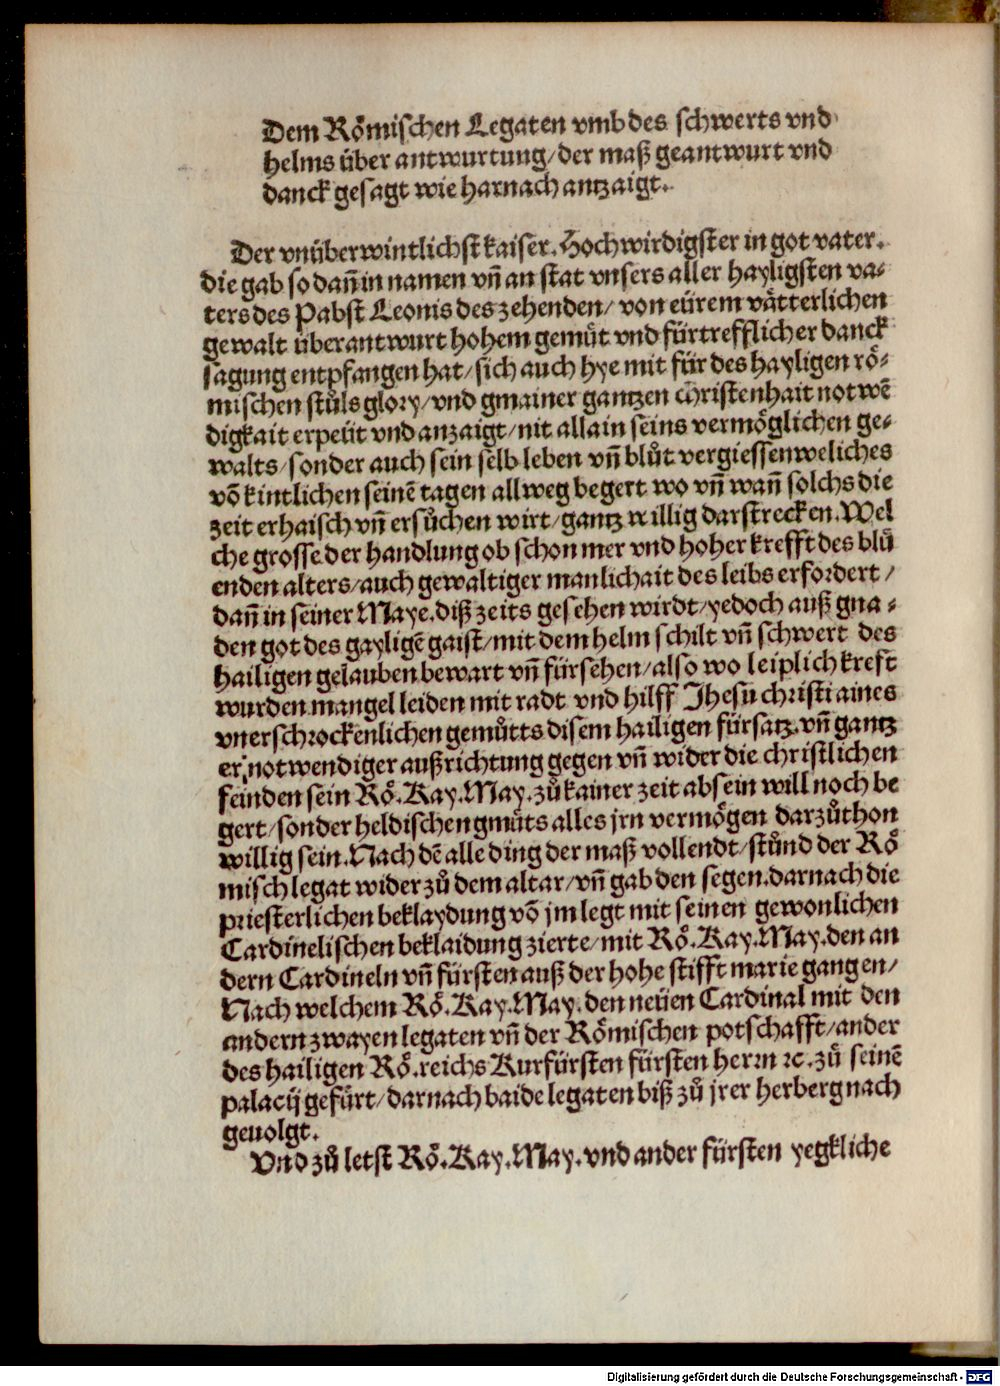 Dem Römischen Legaten vmb des schwerts vnd
helms über antwurtung/der maß geantwurt vnd
danck gesagt wie harnach antzaigt.
Der vnüberwintlichst kaiser. Hochwirdigster in got vater.
die gab so dañ in namen vñ an stat vnsers aller hayligsten va-
ters des Pabst Leonis des zehenden/ von eürem vätterlichen
gewalt überantwurt hohem gemüt vnd fürtrefflicher danck
sagung entpfangen hat/sich auch hye mit für des hayligen rö-
mischen stůls glory/vnd gmainer gantzen christenhait notwē
digkait erpeüt vnd anzaigt/nit allain seins vermöglichen ge-
walts/sonder auch sein selb leben vñ blůt vergiessen weliches
võ kintlichen seinē tagen allweg begert wo vñ wañ solchs die
zeit erhaisch vñ ersůchen wirt/gantz willig darstrecken. Wel
che grosse der handlung ob schon mer vnd hoher krefft des blů
enden alters/auch gewaltiger manlichait des leibs erfordert/
dañ in seiner Maye. diß zeits gesehen wirdt/yedoch auß gna-
den got des gayligē gaist/mit dem helm schilt vñ schwert des
hailigen gelauben bewart vñ fürsehen/also wo leiplich kreft
wurden mangel leiden mit radt vnd hilff Jhesu christi aines
vnerschrockenlichen gemůtts disem hailigen fürsatz. vñ gantz
er notwendiger außrichtung gegen vñ wider die christlichen
feinden sein Rö. Kay. May. zů kainer zeit absein will noch be
gert/sonder heldischen gmůts alles jrn vermögen darzůthon
willig sein. Nach dē alle ding der maß vollendt/stůnd der Rö
misch legat wider zů dem altar/vñ gab den segen. darnach die
priesterlichen beklaydung võ jm legt mit seinen gewonlichen
Cardinelischen beklaidung zierte/mit Rö. Kay. May. den an
dern Cardineln vñ fürsten auß der hohe stifft marie gangen/
Nach welchem Rö. Kay. May. den neüen Cardinal mit den
andern zwayen legaten vñ der Römischen potschafft/ander
des hailigen Rö. reichs Kurfürsten fürsten herrn ⁊c. zů seinē
palacij gefürt/darnach baide legaten biß zů jrer herberg nach
geuolgt.
Vnd zů letst Rö. Kay. May. vnd ander fürsten yegkliche
Digitalisierung gefördert durch die Deutsche Forschungsgemeinschaft - DFG